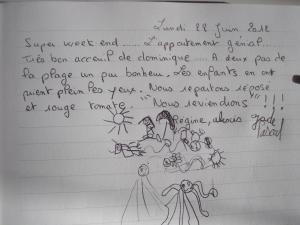 Lundi 28 Juin 2012
Super week end ...... L'appartement génial...
Très bon acceuil de dominique .... A deux pas de
la plage un pur bonheur. Les enfants en ont
pleint les yeux. Nous repartons reposé
et rouge tomate. "Nous reviendrons" !!!
Régine, alexis Jade